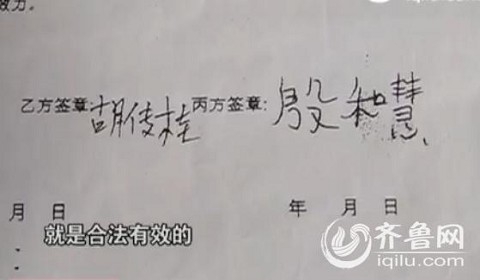 效力。
乙方签章:胡传桂 丙方签章:殷和慧
月 日 年 月 日
就是合法有效的
齐鲁网
iqilu.com